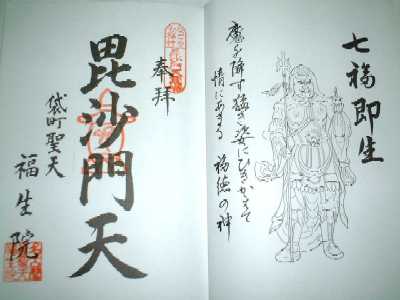 七福即生
魔を降す猛き姿にひきかえて
情にあまる 福徳の神
奉拝
毘沙門天
袋町聖天
福生院